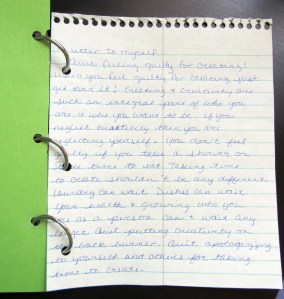 letter to myself,
Quit feeling guilty for creating!
When you feel guilty for creating just
get over it! Creating & creativity are
such an integral part of who you
are & who you want to be. If you
neglect creativity then you are
neglecting yourself. You don't feel
guilty if you take a shower or
some time to eat. Taking time
to create shouldn't be any different.
Laundry can wait. Dishes can wait.
Your &
growing who you
are as a person can't wait any
longer. Quit putting creativity on
the back burner. Quit apologizing
to yourself and others for taking
time to create.